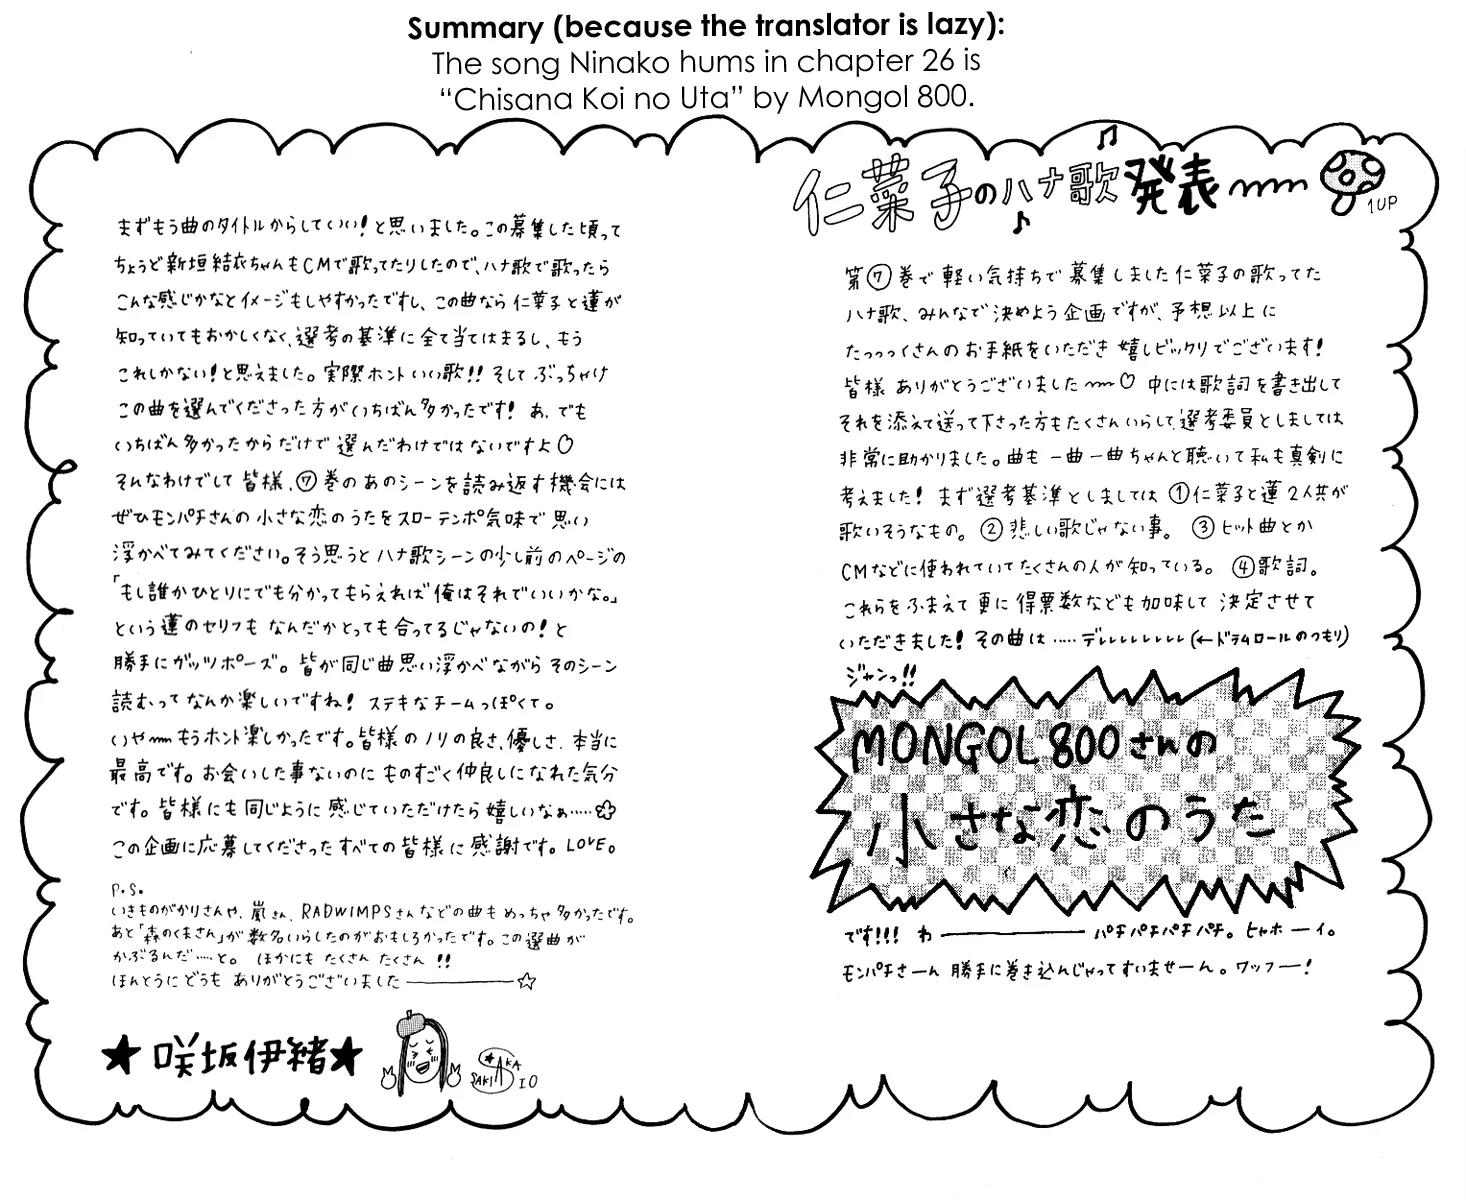 Summary (because the translator is lazy):
The song Ninako hums in chapter 26 is
“Chisana Koi no Uta” by Mongol 800.
仁菜子のハナ歌発表
1UP
第⑦巻で軽い気持ちで募集しました仁菜子の歌ってた
ハナ歌、みんなで決めよう企画ですが、予想以上に
たっっっくさんのお手紙をいただき嬉しビックリでございます!
皆様ありがとうございました〰♡ 中には歌詞を書き出して
それを添えて送って下さった方もたくさんいらして、選考委員としましては
非常に助かりました。曲も一曲一曲ちゃんと聴いて私も真剣に
考えました! まず選考基準としましては ①仁菜子と蓮2人共が
歌いそうなもの。 ②悲しい歌じゃない事。 ③ヒット曲とか
CMなどに使われていてたくさんの人が知っている。 ④歌詞。
これらをふまえて更に得票数なども加味して決定させて
いただきました! その曲は……デレレレレレレレレ(←ドラムロールのつもり)
ジャンっ!!
MONGOL800さんの
小さな恋のうた
です!!! わ―――― パチパチパチパチ。ヒャホーイ。
モンパチさーん勝手に巻き込んじゃってすいませーん。ワッフー!
まずもう曲のタイトルからしていい!と思いました。この募集した頃って
ちょうど新垣結衣ちゃんもCMで歌ってたりしたので、ハナ歌で歌ったら
こんな感じかなとイメージもしやすかったですし、この曲なら仁菜子と蓮が
知っていてもおかしくなく、選考の基準に全て当てはまるし、もう
これしかない!と思えました。実際ホントいい歌!! そしてぶっちゃけ
この曲を選んでくださった方がいちばん多かったです! あ、でも
いちばん多かったからだけで選んだわけではないですよ♡
そんなわけでして皆様、⑦巻のあのシーンを読み返す機会には
ぜひモンパチさんの小さな恋のうたをスローテンポ気味で思い
浮かべてみてください。そう思うとハナ歌シーンの少し前のページの
「もし誰かひとりにでも分かってもらえれば俺はそれでいいかな。」
という蓮のセリフもなんだかとっても合ってるじゃないの!と
勝手にガッツポーズ。皆が同じ曲思い浮かべながらそのシーン
読むってなんか楽しいですね! ステキなチームっぽくて。
いや〰もうホント楽しかったです。皆様のノリの良さ、優しさ、本当に
最高です。お会いした事ないのにものすごく仲良しになれた気分
です。皆様にも同じように感じていただけたら嬉しいなぁ……
この企画に応募してくださったすべての皆様に感謝です。LOVE。
P.S.
いきものがかりさんや、嵐さん、RADWIMPSさんなどの曲もめっちゃ多かったです。
あと「森のくまさん」が数名いらしたのがおもしろかったです。この選曲が
かぶるんだ……と。 ほかにもたくさんたくさん!!
ほんとうにどうもありがとうございました――――☆
★咲坂伊緒★
SAKISAKA IO